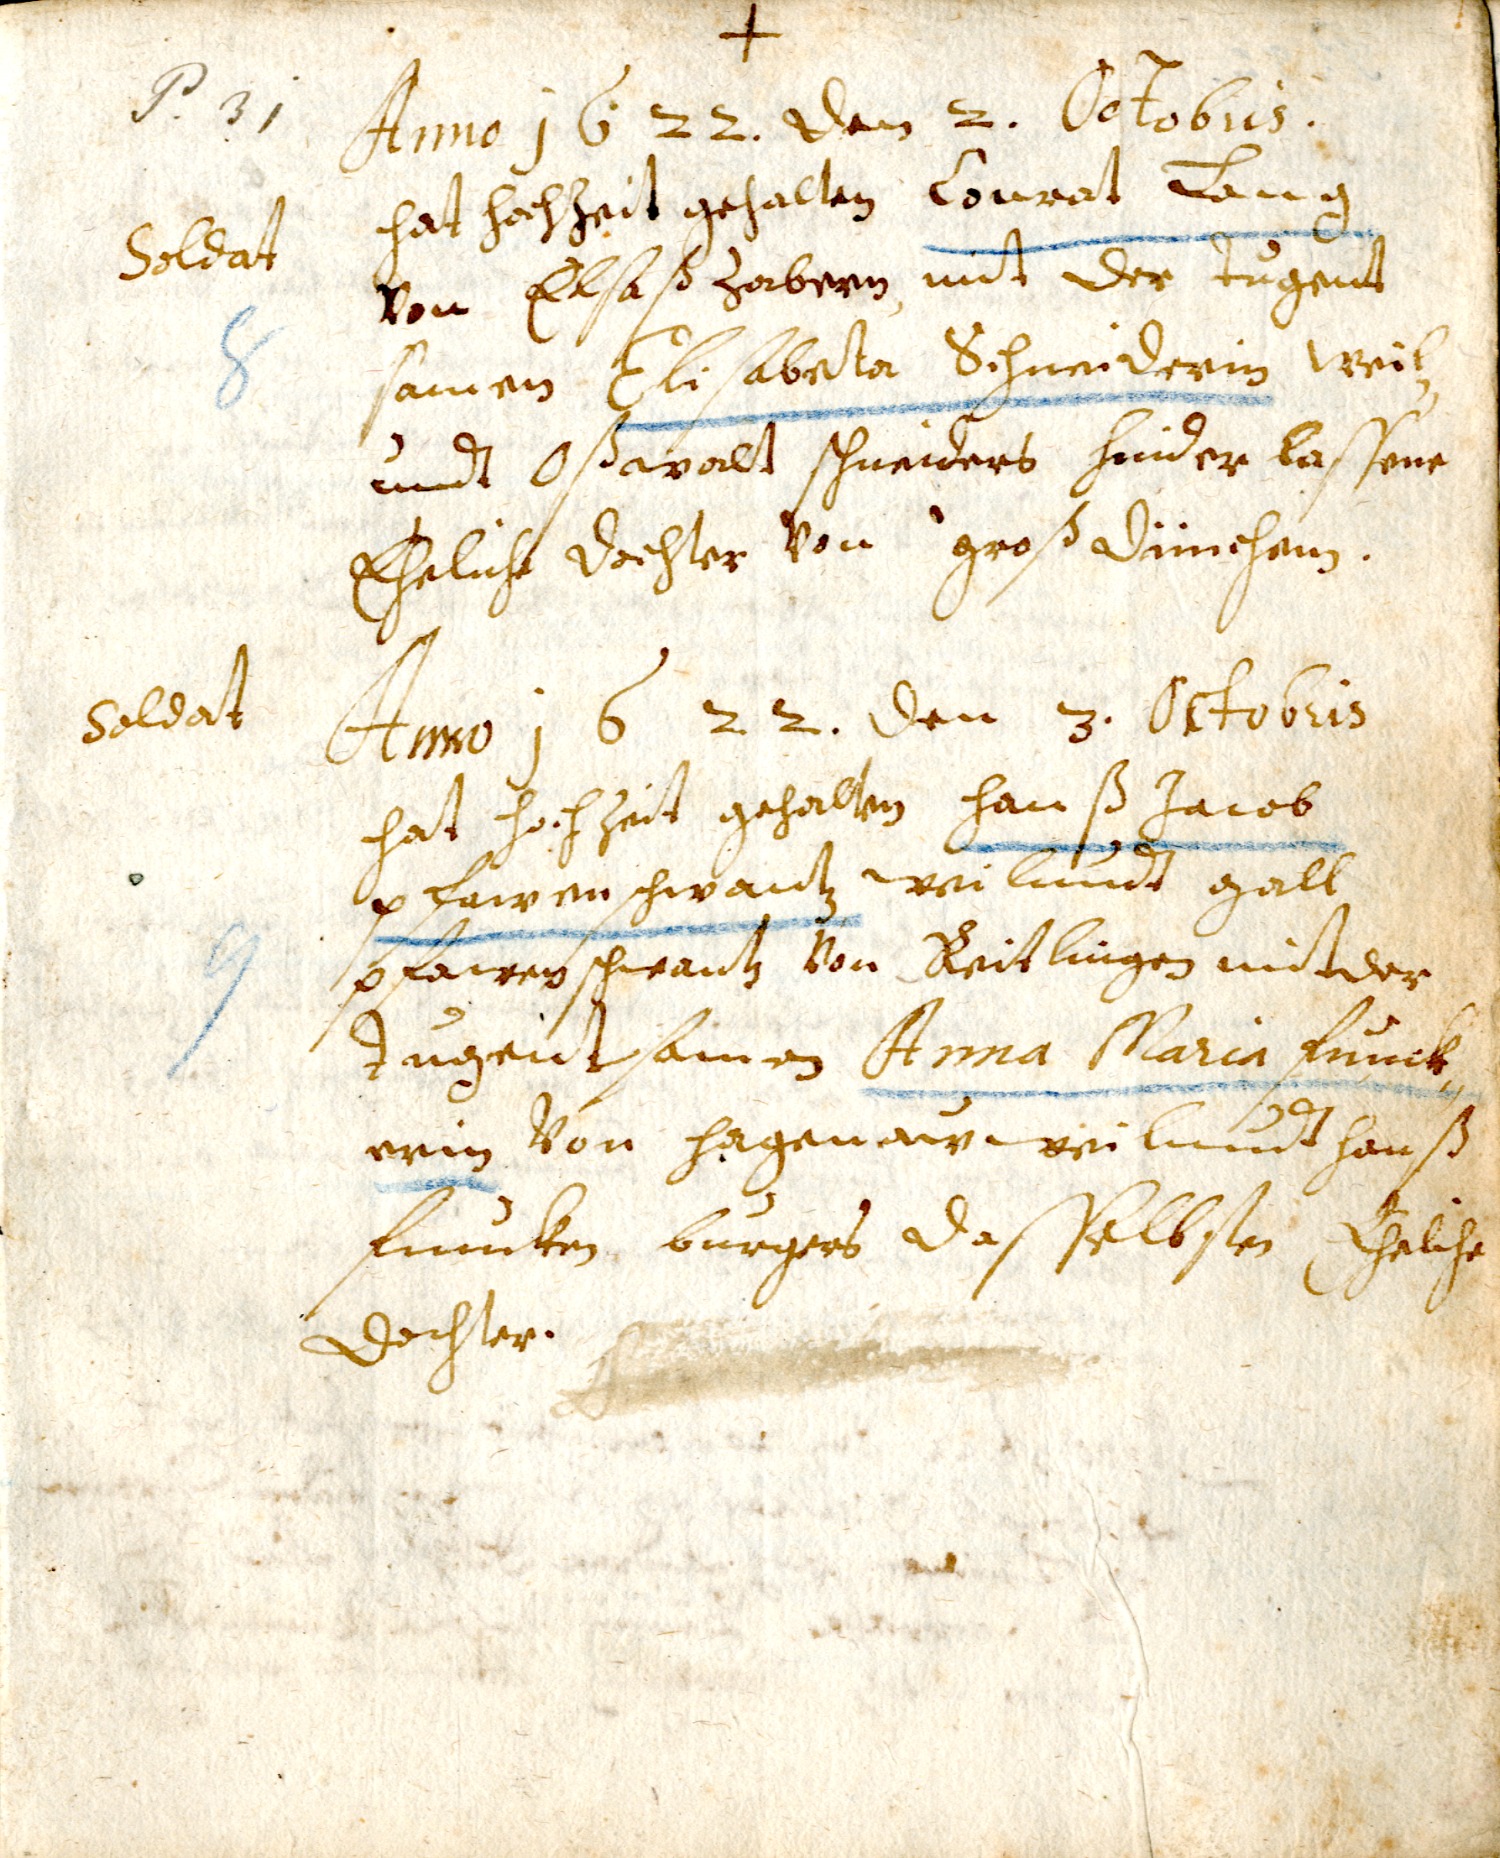 +
P. 31
Anno 1622. den 2. Octobris.
hat hochzeit gehalten Conrat Lang
Soldat
von Elsaß zabern, mit der tugent
8
samen Elisabetta Schneiderin weil,,
undt Oßwalt schneiders hinder lassene
Eheliche dochter von groß
Soldat
Anno 1622. den 3. Octobris
hat hochzeit gehalten hanß Jacob
pfawenschwantz weilundt gall
9
pfawenschwantz von Reitlingen mit der
tugentsamen Anna Maria funck,,
erin von hagenaw weilundt hanß
funcken burgers dasselbsten Eheliche
dochter.